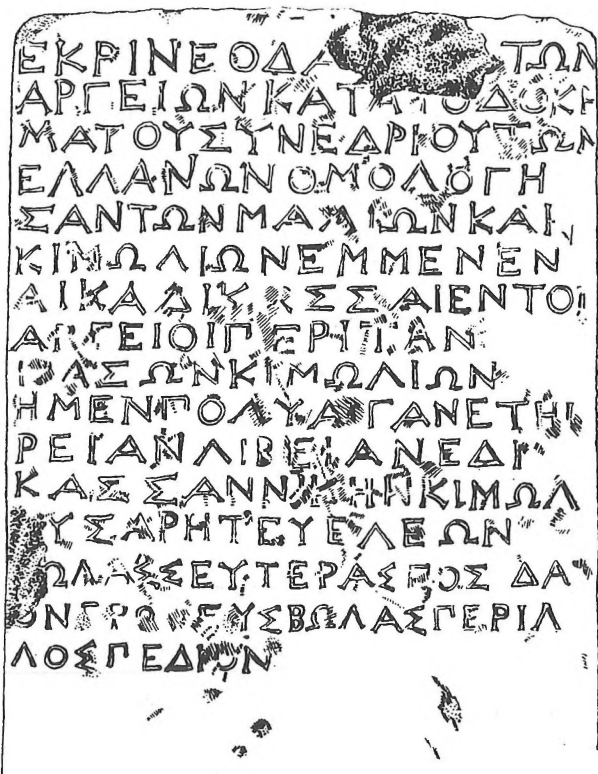 ΕΚΡΙΝΕΟΔΑ ΤΩΝ
ΑΡΓΕΙΩΝΚΑΤΑΤΟΔΟΚΗ
ΜΑΤΟΥΣΥΝΕΔΡΙΟΥΤΩΝ
ΕΛΛΑΝΩΝΟΜΟΛΟΓΗ
ΣΑΝΤΩΝΜΑΛΙΩΝΚΑΙ
ΚΙΜΩΛΙΩΝΕΜΜΕΝΕΝ
ΑΙΚΑΔΙΚΑΣΣΑΙΕΝΤΟΙ
ΑΡΓΕΙΟΙΠΕΡΙΤΑΝ
ΝΑΣΩΝΚΙΜΩΛΙΩΝ
ΗΜΕΝΠΟΛΥΑΙΓΑΝΕΤΗ
ΡΕΙΑΝΛΙΒΕΙΑΝΕΔΙ
ΚΑΣΣΑΝΝΙΚΗΝΚΙΜΩΛ
ΥΣΑΡΗΤΕΥΕΛΕΩΝ
ΩΛΑΣΣΕΥΤΕΡΑΣΠΟΣ ΔΑ
ΟΝΓΡΟΦΕΥΣΒΩΛΑΣΠΕΡΙΛ
ΛΟΣΠΕΔΙΟΝ